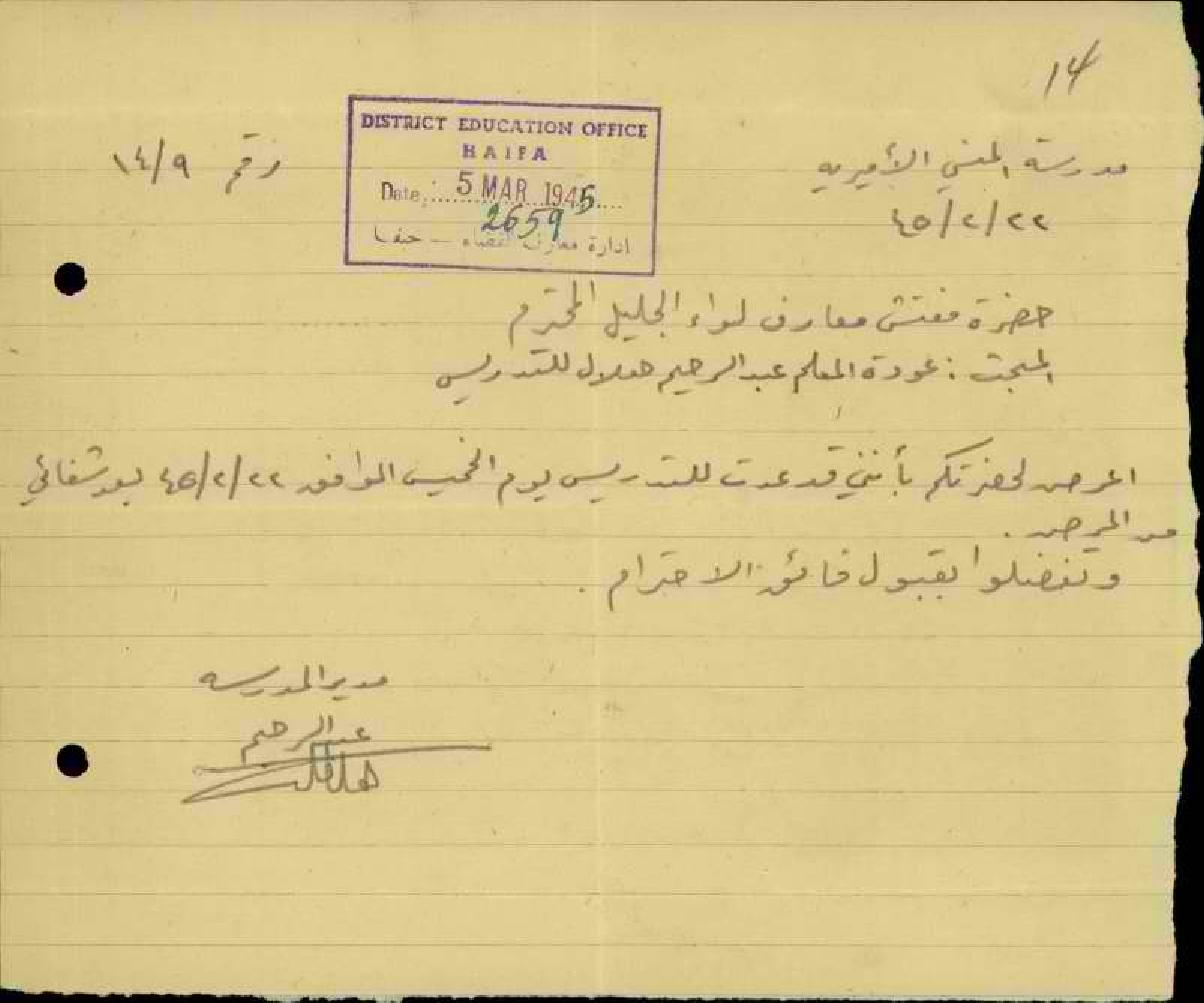 14
مدرسة المنسي الأميريه
رقم ١٤/٩
٤٥/٢/٢٢
DISTRICT EDUCATION OFFICE
HAIFA
Date: 5 MAR 1945
2659
ادارة معارف القضاء - حيفا
حضرة مفتش معارف لواء الجليل المحترم
المبحث : عودة المعلم عبد الرحيم هلال للتدريس
اعرض لحضرتكم بأنني قد عدت للتدريس يوم الخميس الموافق ٤٥/٢/٢٢ بعد شفائي
من المرض .
وتفضلوا بقبول فائق الاحترام .
مدير المدرسه
عبد الرحيم